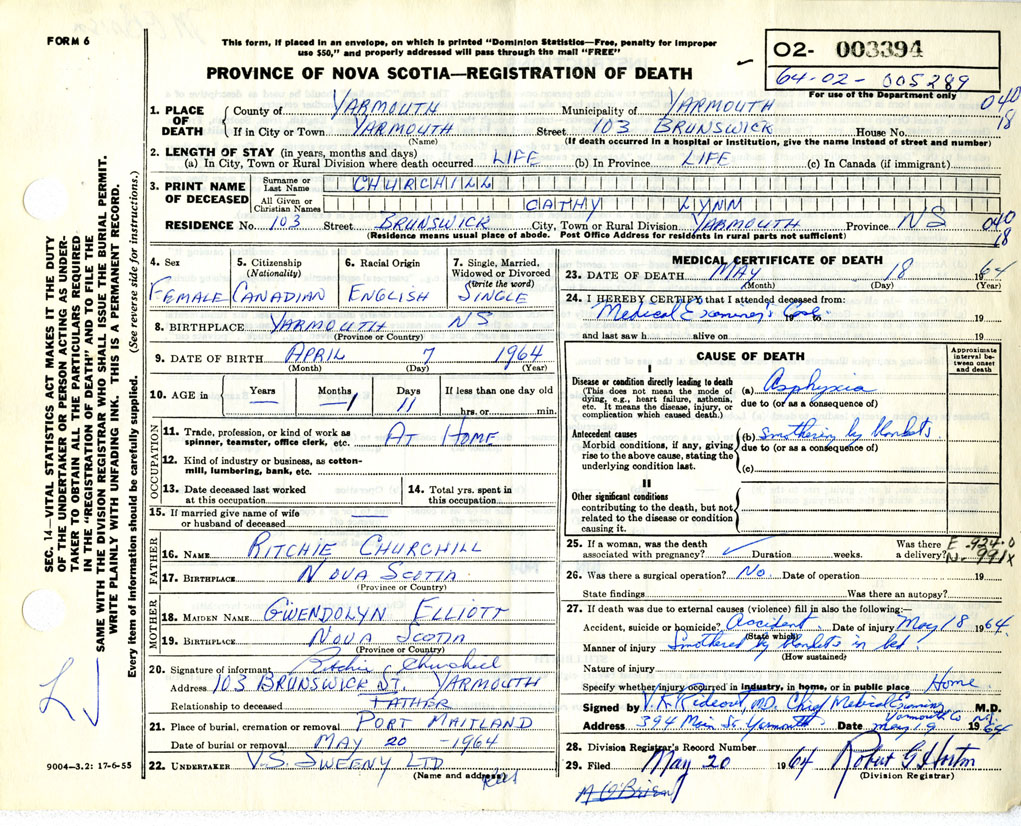 FORM 6
This form, if placed in an envelope, on which is printed "Dominion Statistics—Free, penalty for improper
use $50," and properly addressed will pass through the mail "FREE"
PROVINCE OF NOVA SCOTIA—REGISTRATION OF DEATH
02- 003394
64-02- 005289
For use of the Department only
040
18
1. PLACE OF DEATH
County of YARMOUTH Municipality of YARMOUTH
If in City or Town YARMOUTH Street 103 BRUNSWICK House No.
(Name) (If death occurred in a hospital or institution, give the name instead of street and number)
2. LENGTH OF STAY (in years, months and days)
(a) In City, Town or Rural Division where death occurred LIFE (b) In Province LIFE (c) In Canada (if immigrant)
3. PRINT NAME OF DECEASED
Surname or Last Name CHURCHILL
All Given or Christian Names CATHY LYNN
RESIDENCE No. 103 Street BRUNSWICK City, Town or Rural Division YARMOUTH Province NS 040
18
(Residence means usual place of abode. Post Office Address for residents in rural parts not sufficient)
4. Sex 5. Citizenship 6. Racial Origin 7. Single, Married,
(Nationality) Widowed or Divorced
(Write the word)
FEMALE CANADIAN ENGLISH SINGLE
8. BIRTHPLACE YARMOUTH NS
(Province or Country)
9. DATE OF BIRTH APRIL 7 1964
(Month) (Day) (Year)
10. AGE in Years Months Days If less than one day old
— 1 11 hrs. or min.
OCCUPATION
11. Trade, profession, or kind of work as
spinner, teamster, office clerk, etc. AT HOME
12. Kind of industry or business, as cotton-
mill, lumbering, bank, etc.
13. Date deceased last worked
at this occupation
14. Total yrs. spent in
this occupation
15. If married give name of wife
or husband of deceased —
FATHER
16. NAME RITCHIE CHURCHILL
17. BIRTHPLACE NOVA SCOTIA
(Province or Country)
MOTHER
18. MAIDEN NAME GWENDOLYN ELLIOTT
19. BIRTHPLACE NOVA SCOTIA
(Province or Country)
20. Signature of informant Ritchie Churchill
Address 103 BRUNSWICK ST. YARMOUTH
Relationship to deceased FATHER
21. Place of burial, cremation or removal PORT MAITLAND
Date of burial or removal MAY 20 -1964
22. UNDERTAKER V.S. SWEENY LTD
(Name and address)
MEDICAL CERTIFICATE OF DEATH
23. DATE OF DEATH MAY 18 1964
(Month) (Day) (Year)
24. I HEREBY CERTIFY that I attended deceased from:
Medical Examiner's Case 19 to 19
and last saw h alive on 19
CAUSE OF DEATH
Approximate interval between onset and death
I
Disease or condition directly leading to death
(This does not mean the mode of
dying, e.g., heart failure, asthenia,
etc. It means the disease, injury, or
complication which caused death.)
(a) Asphyxia
due to (or as a consequence of)
Antecedent causes
Morbid conditions, if any, giving
rise to the above cause, stating the
underlying condition last.
(b) smothering by blankets
due to (or as a consequence of)
(c)
II
Other significant conditions
contributing to the death, but not
related to the disease or condition
causing it.
25. If a woman, was the death Was there E-924.0
associated with pregnancy? Duration weeks. a delivery? N-991X
26. Was there a surgical operation? No. Date of operation 19
State findings Was there an autopsy?
27. If death was due to external causes (violence) fill in also the following:—
Accident, suicide or homicide? Accident Date of injury May 18 1964
(State which)
Manner of injury Smothered by blankets in bed.
(How sustained)
Nature of injury
Specify whether injury occurred in industry, in home, or in public place Home
Signed by V.K. Rideout, M.D. Chief Medical Examiner M.D.
Yarmouth Co NS
Address 394 Main St. Yarmouth Date May 19 1964
28. Division Registrar's Record Number
29. Filed May 20 1964 Robert G. Horton
(Division Registrar)
A O'Brien
SEC. 14—VITAL STATISTICS ACT MAKES IT THE DUTY
OF THE UNDERTAKER OR PERSON ACTING AS UNDER-
TAKER TO OBTAIN ALL THE PARTICULARS REQUIRED
IN THE "REGISTRATION OF DEATH" AND TO FILE THE
SAME WITH THE DIVISION REGISTRAR WHO SHALL ISSUE THE BURIAL PERMIT.
WRITE PLAINLY WITH UNFADING INK. THIS IS A PERMANENT RECORD.
Every item of information should be carefully supplied. (See reverse side for instructions.)
9004-3.2: 17-6-55